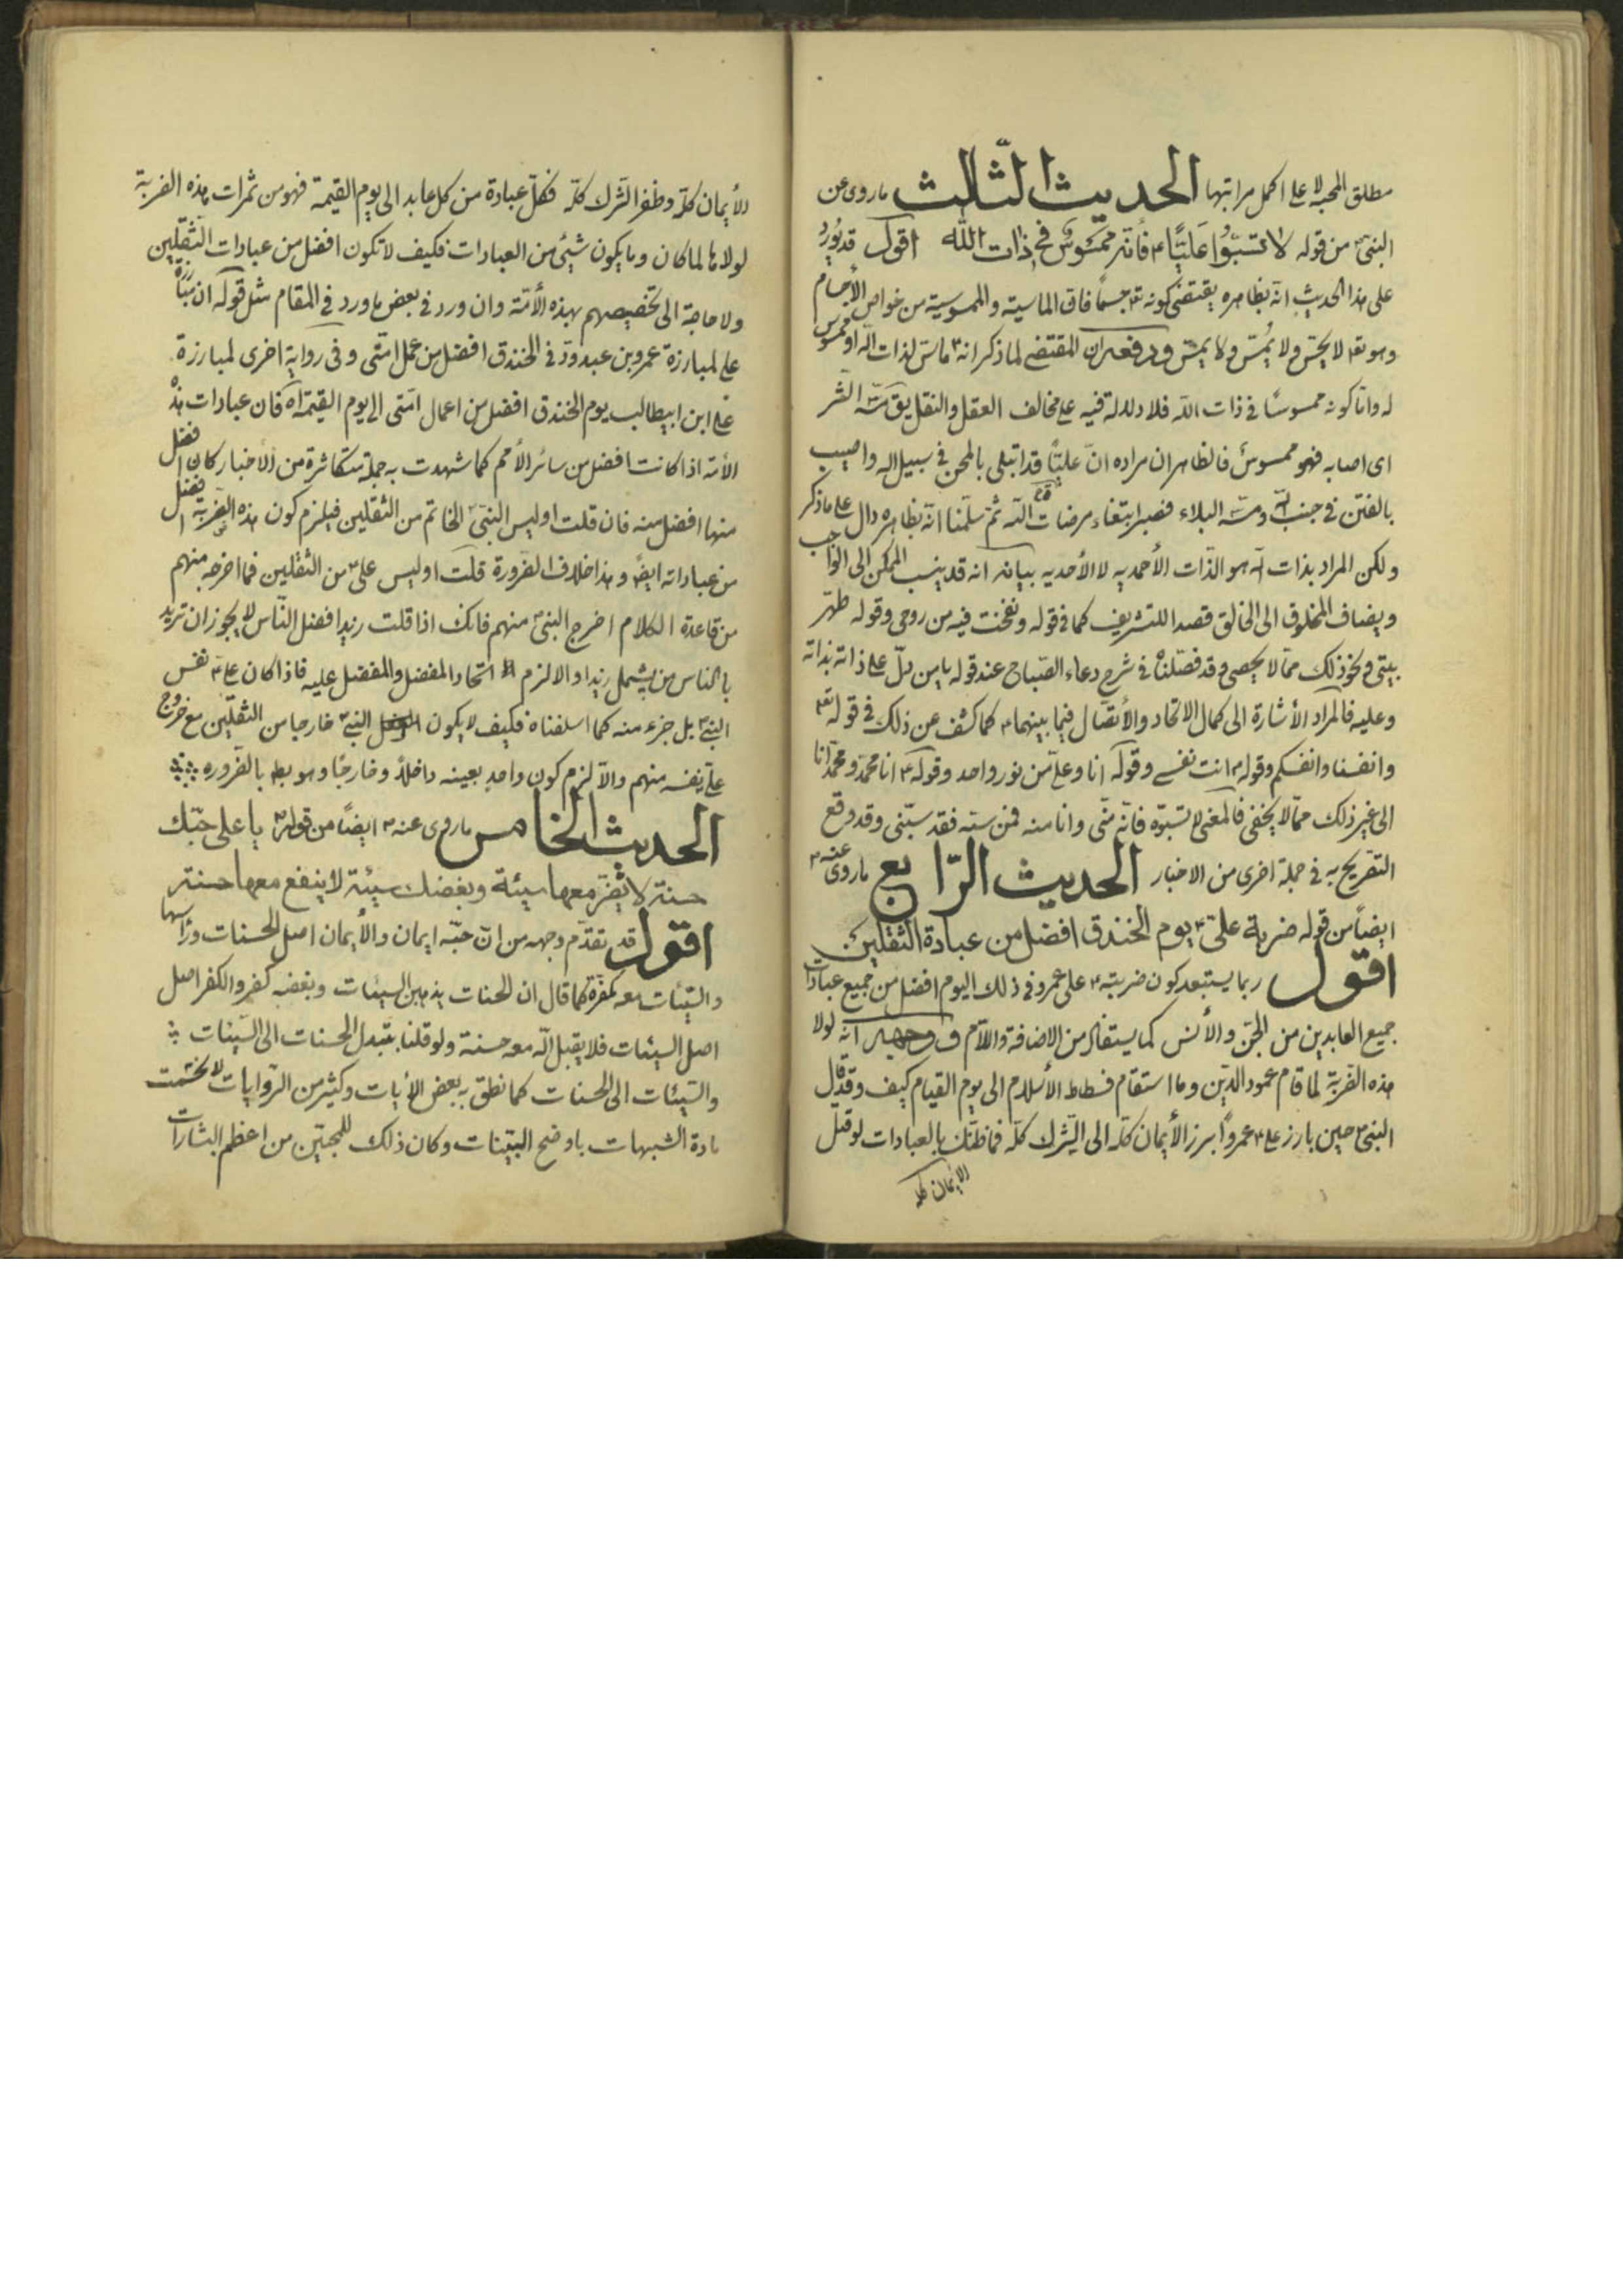 مطلق المحبة لا على اكمل مراتبها الحديث الثّالث ما روى عن
النبىّ ص من قوله لا تسبّوا عَليّاً ع فأنّه ممسُوسٌ فى ذات الله اقول قد يُورد
على هذا الحديث انّه بظاهره يقتضى كونه تع جسماً فان الماسية والممسوسية من خواص الأجسام
وهو تع لا يحسّ ولا يُمسّ ولا يمسّ ودفعه ان المقتضى لما ذكر انه ع ماسّ لذات الله او ممسوس
له وامّا كونه ممسوسًا فى ذات الله فلا دلالة فيه على مخالف العقل والنقل يق مسّه الشّر
اى اصابه فهو ممسوسٌ فالظاهر ان مراده انّ عليّاً قد ابتلى بالمحن فى سبيل اله واصيب
بالفتن فى جنب الله ومسّه البلاء فصبر ابتغاء مرضات الله ثمّ سلّمنا انّه بظاهره دال على ما ذكر
ولكن المراد بذات الله هو الذّات الأحمديه لا الأحديه بيانه انه قد ينسب الممكن الى الواجب
ويضاف المخلوق الى الخالق قصدا للتشريف كما فى قوله ونفخت فيه من روحى وقوله طهّر
بيتى ونحو ذلك ممّا لا يحصى وقد فصّلناه فى شرح دعاء الصّباح عند قوله يا من دلّ على ذاته بذاته
وعليه فالمراد الأشارة الى كمال الاتحاد والأتصال فيما بينهما ع كما كشف عن ذلك فى قوله تع
وانفسنا وانفسكم وقوله ص انت نفسى وقوله انا وعلىّ من نور واحد وقوله ع انا محمّد ومحمّد انا
الى غير ذلك ممّا لا يخفى فالمعنى لا تسبّوه فأنّه منّى وانا منه فمن سبّه فقد سبّنى وقد وقع
التصريح به فى جملة اخرى من الاخبار الحديث الرّابع ما روى عنه ص
ايضاً من قوله ضربة علىّ ع يوم الخندق افضل من عبادة الثقلين
اقول ربما يستبعد كون ضربته ع على عمرو فى ذلك اليوم افضل من جميع عبادات
جميع العابدين من الجنّ والأنس كما يستفاد من الاضافة واللاّم ووجهه انّه لولا
هذه الضّربة لما قام عمود الدّين وما استقام فسطاط الأسلام الى يوم القيام كيف وقد قال
النبىّ ص حين بارز على ع عمرواً برز الأيمان كلّه الى الشّرك كلّه فما ظنّك بالعبادات لو قتل
الايمان كله
الأيمان كلّه وظفر الشّرك كلّه فكلّ عبادة من كل عابد الى يوم القيمة فهو من ثمرات هذه الضربة
لولاها لما كان وما يكون شيئ من العبادات فكيف لا تكون افضل من عبادات الثّقلين
ولا حاجة الى تخصيصهم بهذه الأمّة وان ورد فى بعض ما ورد فى المقام مثل قوله ان مبارزة
على لمبارزة عمرو بن عبدودّ فى الخندق افضل من عمل امّتى وفى رواية اخرى لمبارزة
على ابن ابيطالب يوم الخندق افضل من اعمال امّتى الى يوم القيمة اه فان عبادات هذه
الأمّة اذا كانت افضل من سائر الأمم كما شهدت به جملة متكاثرة من الأخبار كان افضل
منها افضل منه فان قلت اوليس النبىّ ص الخاتم من الثّقلين فيلزم كون هذه الضّربة افضل
من عباداته ايضً وهذا خلاف الضّرورة قلت اوليس على ع من الثّقلين فما اخرجه منهم
من قاعدة الكلام اخرج النبىّ ص منهم فانك اذا قلت زيد افضل النّاس لا يجوز ان تريد
بالناس من يشمل زيدا والا لزم اتحاد المفضل والمفضل عليه فاذا كان علىّ ع نفس
النبىّ ص بل جزء منه كما اسلفناه فكيف لا يكون النبىّ ص خارجا من الثقلين مع خروج
علىّ نفسه منهم والاّ لزم كون واحدٍ بعينه داخلاً وخارجًا وهو بط بالضّرورة
الحديث الخامس ما روى عنه ص ايضاً من قوله ص يا على حبّك
حسنة لا يضرّ معها سيئة وبغضك سيئة لا ينفع معها حسنة
اقول قد تقدّم وجهه من انّ حبّه ايمان والأيمان اصل الحسنات وراسها
والسّيئات معه مكفرة كما قال ان الحسنات يذهبن السيئات وبغضه كفر والكفر اصل
اصل السيئات فلا يقبل الله معه حسنة ولو قلنا بتبدل الحسنات الى السّيئات
والسّيئات الى الحسنات كما نطق به بعض الأيات وكثير من الرّوايات لانحسمت
مادة الشبهات باوضح البيّنات وكان ذلك للمحبّين من اعظم البشارات